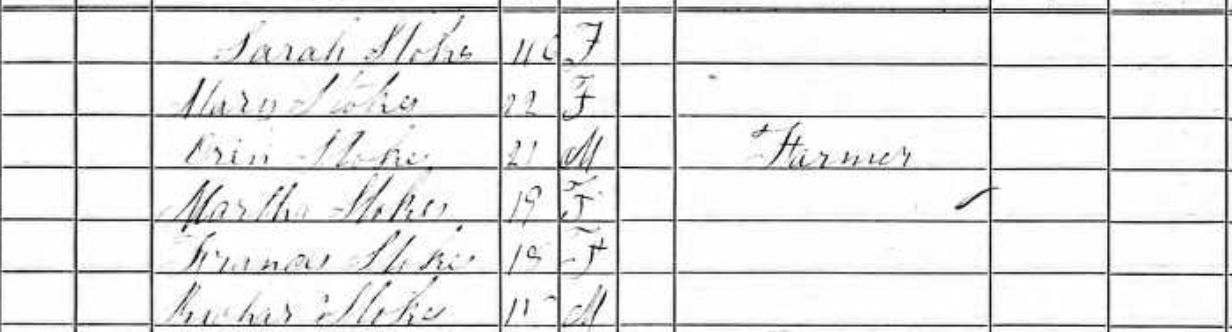 Sarah Stokes F
Mary Stokes 22 F
Orin Stokes 21 M Farmer
Martha Stokes 19 F
Frances Stokes 18 F
Stokes M